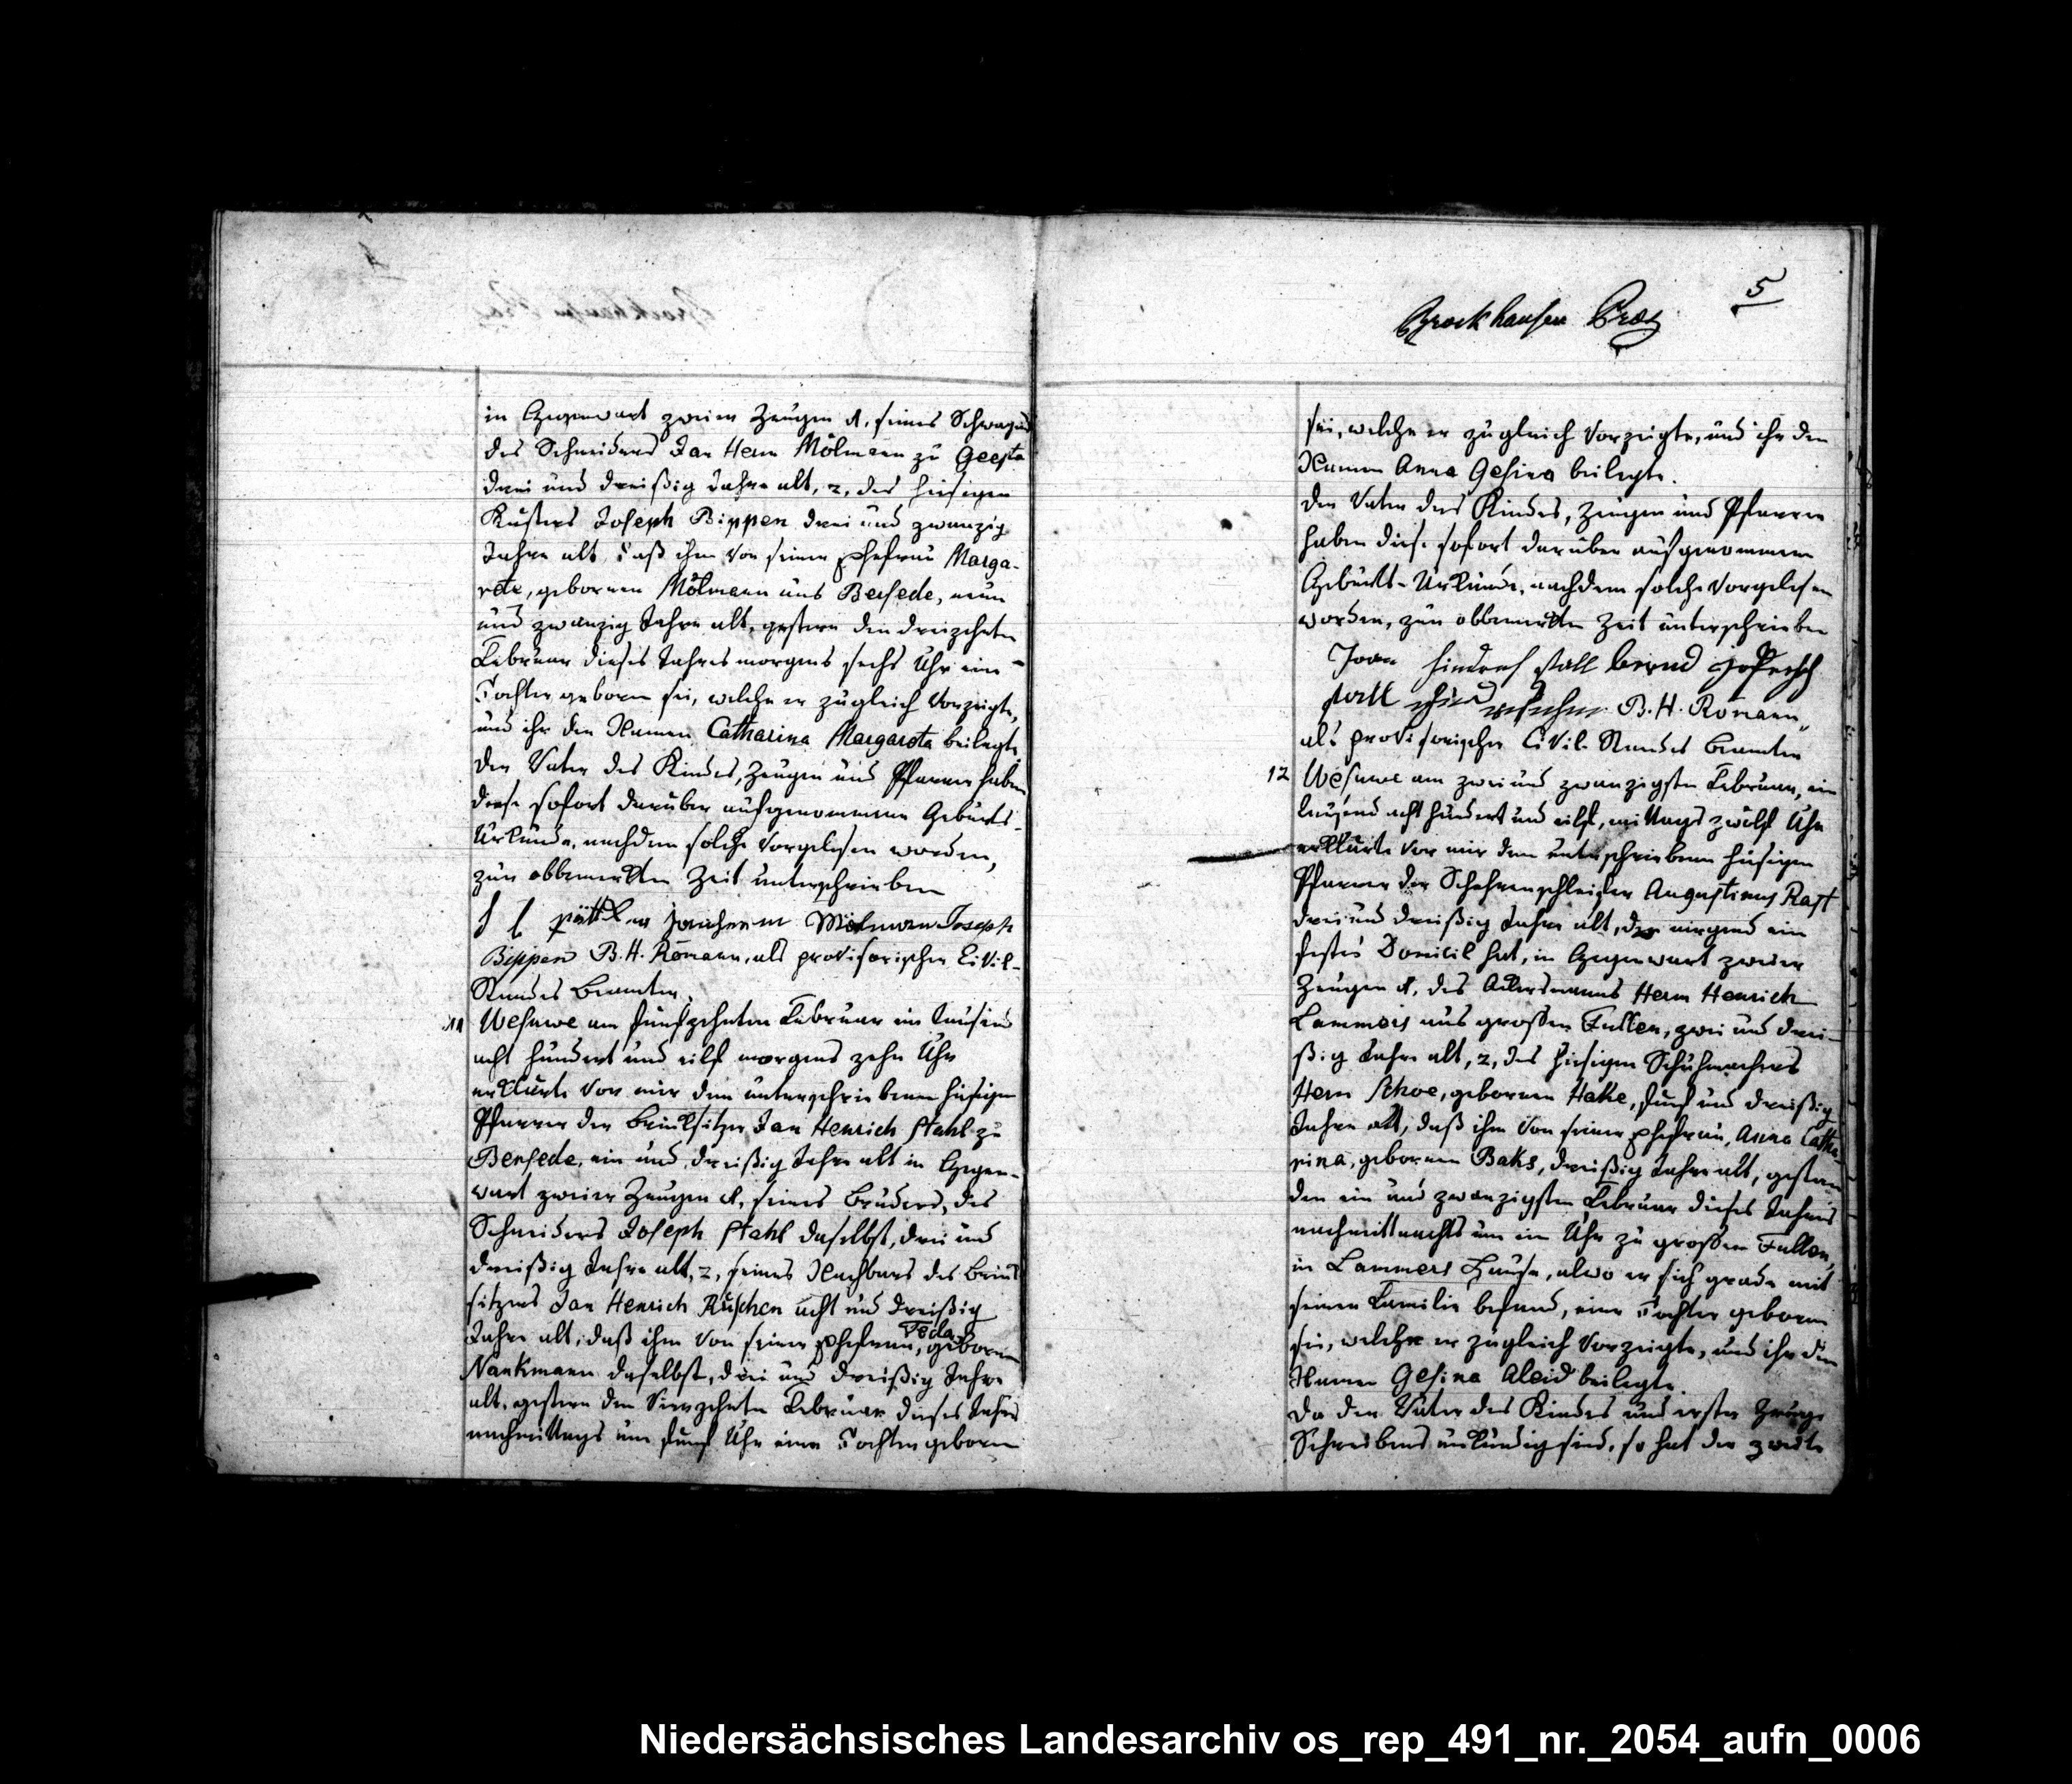 in Gegenwart zweier Zeugen 1, seines Schwagers
des Schneiders Jan Herm Mölmann zu Geeste
drei und dreißig Jahre alt, 2, des hiesigen
Küsters Joseph Bippen drei und zwanzig
Jahre alt, daß ihm von seiner Ehefrau Marga-
rete, gebornen Mölmann aus Bersede, neun
und zwanzig Jahre alt, gestern den dreizehnten
Februar dieses Jahres morgens sechs Uhr eine
Tochter geboren sei, welche er zugleich vorzeigte,
und ihr den Namen Catharina Margareta beilegte
Der Vater des Kindes, Zeugen und Pfarrer haben
diese sofort darüber aufgenommene Geburts-
Urkunde, nachdem solche vorgelesen worden,
zur obbemerkten Zeit unterschrieben
Mölman Joseph
Bippen B. H. Romann, als provisorischer Civil-
Standes Beamter.
11 Wesuwe am funfzehnten Februar ein tausend
acht hundert und eilf morgens zehn Uhr
erklärte vor mir dem unterschriebenen hiesigen
Pfarrer der Brinksitzer Jan Henrich Stahl zu
Bersede, ein und dreißig Jahre alt in Gegen-
wart zweier Zeugen 1, seines Bruders, des
Schneiders Joseph Stahl daselbst, drei und
dreißig Jahre alt, 2, seines Nachbars des Brink
sitzers Jan Henrich Rüschen acht und dreißig
Jahre alt, daß ihm von seiner Ehefrau, Feda, gebornen
Nankmann daselbst, drei und dreißig Jahre
alt, gestern den vierzehnten Februar dieses Jahrs
nachmittags um funf Uhr eine Tochter geboren
5
Brockhausen
sei, welche er zugleich vorzeigte, und ihr den
Namen Anna Gesina beilegte.
Der Vater des Kindes, Zeugen und Pfarrer
haben diese sofort darüber aufgenommene
Geburts-Urkunde, nachdem solche vorgelesen
worden, zur obbemerkten Zeit unterschrieben
Joan Hindrich stall bernd Joseph
stall B. H. Romann,
als provisorischer Civil-Standes Beamter
12 Wesuwe am zwei und zwanzigsten Februar, ein
tausend acht hundert und eilf, mittags zwölf Uhr
erklärte vor mir dem unterschriebenen hiesigen
Pfarrer der Scherenschleifer Augustinus Rast
drei und dreißig Jahre alt, der nirgend ein
festes Domicil hat, in Gegenwart zweier
Zeugen 1, des Ackersmanns Herm Henrich
Lammers aus großen Fullen, zwei und drei-
ßig Jahre alt, 2, des hiesigen Schuhmachers
Herm Schoe, gebornen Hake, funf und dreißig
Jahre alt, daß ihm von seiner Ehefrau, Anna Catha-
rina, gebornen Baks, dreißig Jahre alt, gestern
den ein und zwanzigsten Februar dieses Jahres
nachmitternachts um ein Uhr zu großen Fullen,
in Lammers Hause, alwo er sich grade mit
seiner Familie befand, eine Tochter geboren
sei, welche er zugleich vorzeigte, und ihr den
Namen Gesina Aleid beilegte.
Da der Vater des Kindes und erster Zeuge
Schreibens unkundig sind, so hat der zweite
Niedersächsisches Landesarchiv os_rep_491_nr._2054_aufn_0006